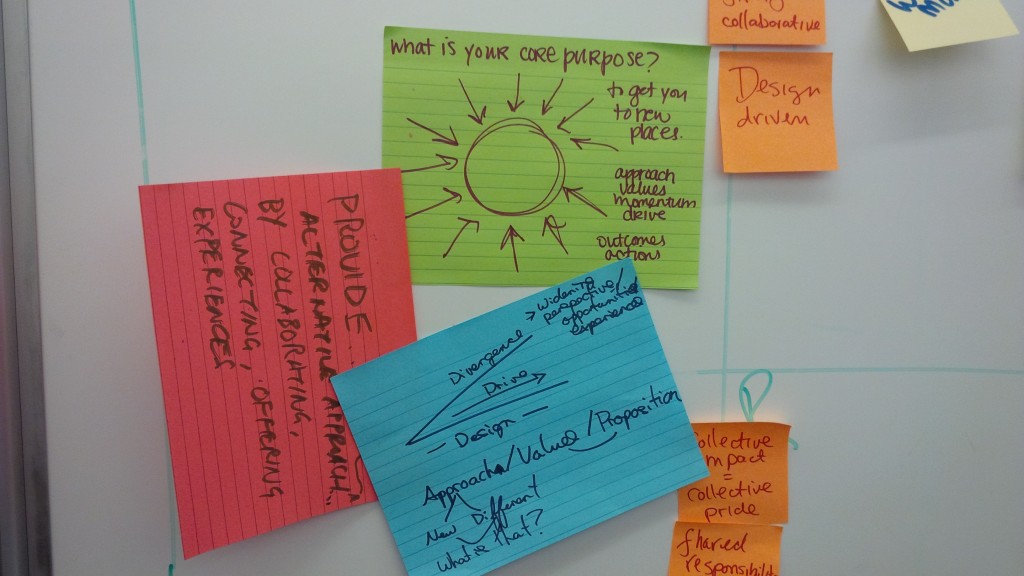 what is your core purpose?
to get you
to new
places.
approach
values
momentum
drive
outcomes
actions
collaborative
Design
driven
PROVIDE...
ALTERNATIVE APPROACH...
BY COLLABORATING,
CONNECTING, OFFERING
EXPERIENCES
→ widening
perspective/
opportunities
experience
Divergence
Drive
- Design -
Approach/Values/Proposition
New Different
what is that?
collective
impact
=
collective
pride
shared
responsibility